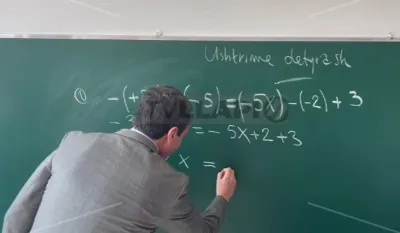 Ushtrime detyrash
① -(+ (-5) = (-5x) - (-2) + 3
= - 5x+2+3
x =